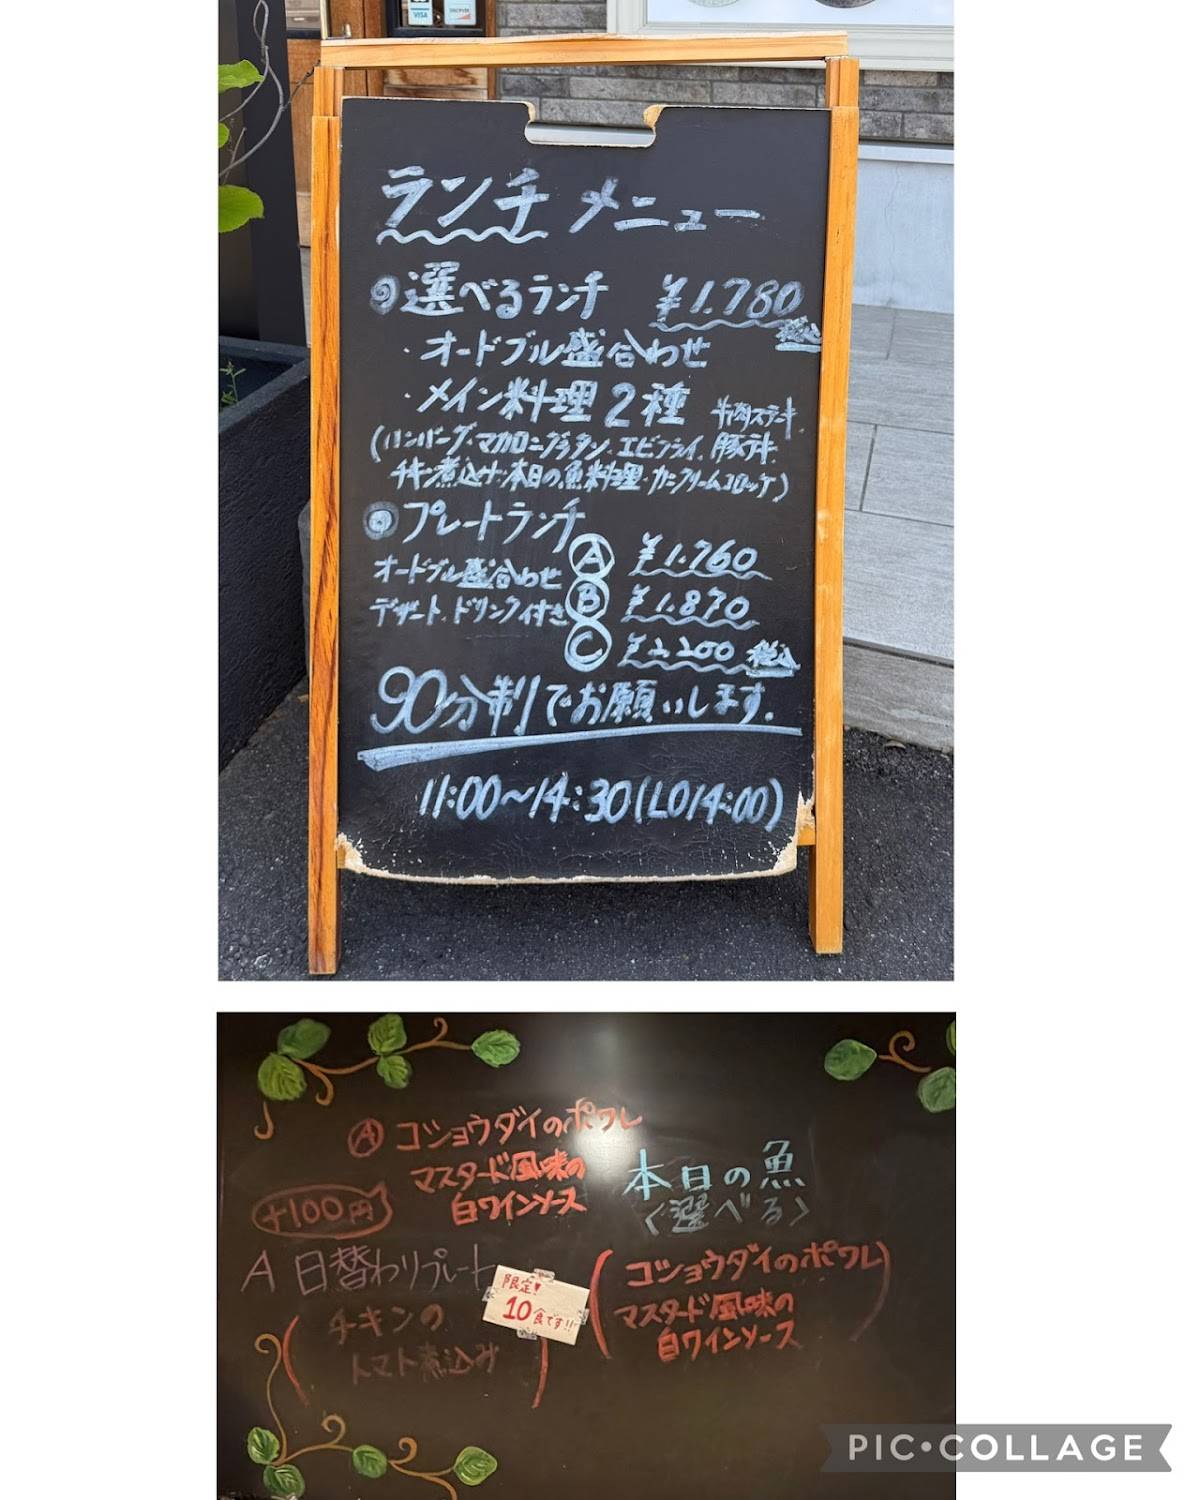 VISA
DISCOVER
ランチ メニュー
◎選べるランチ ¥1.780
税込
・オードブル盛合わせ
・メイン料理2種 牛肉ステーキ.
(ハンバーグ.マカロニグラタン.エビフライ.豚テキ.
チキン煮込み.本日の魚料理.カニクリームコロッケ)
◎プレートランチ
Ⓐ ¥1.760
オードブル盛合わせ
Ⓑ ¥1.870
デザート.ドリンク付き
Ⓒ ¥2.200 税込
90分制でお願いします.
11:00~14:30(LO14:00)
Ⓐ コショウダイのポワレ
マスタード風味の
白ワインソース
+100円
A 日替わりプレート
(チキンの
トマト煮込み)
限定!
10食です!!
本日の魚
<選べる>
(コショウダイのポワレ)
マスタード風味の
白ワインソース
PIC•COLLAGE